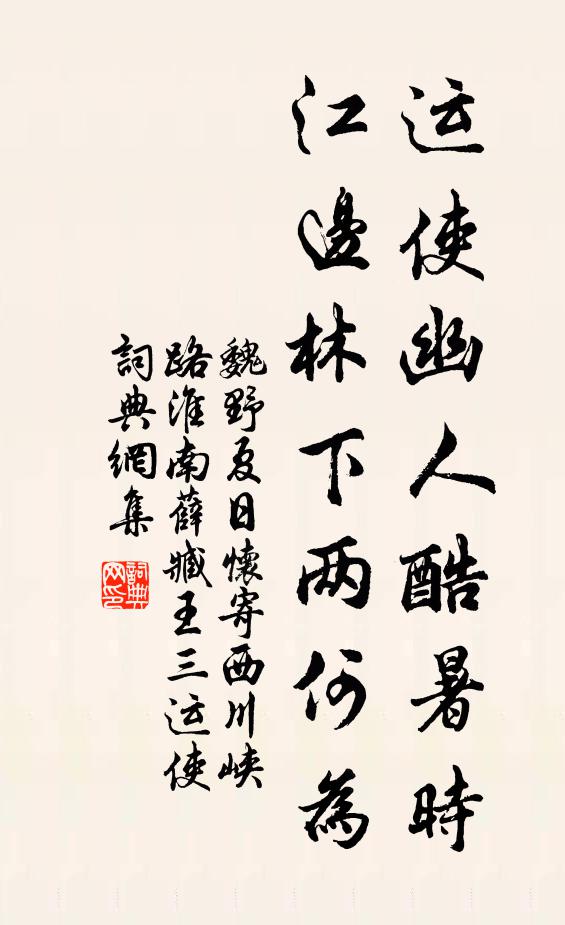 运使幽人酷暑時
江邊林下两何為
魏野夏日懷寄西川峡
路淮南薛臧王三运使
詞典網集
詞典网印